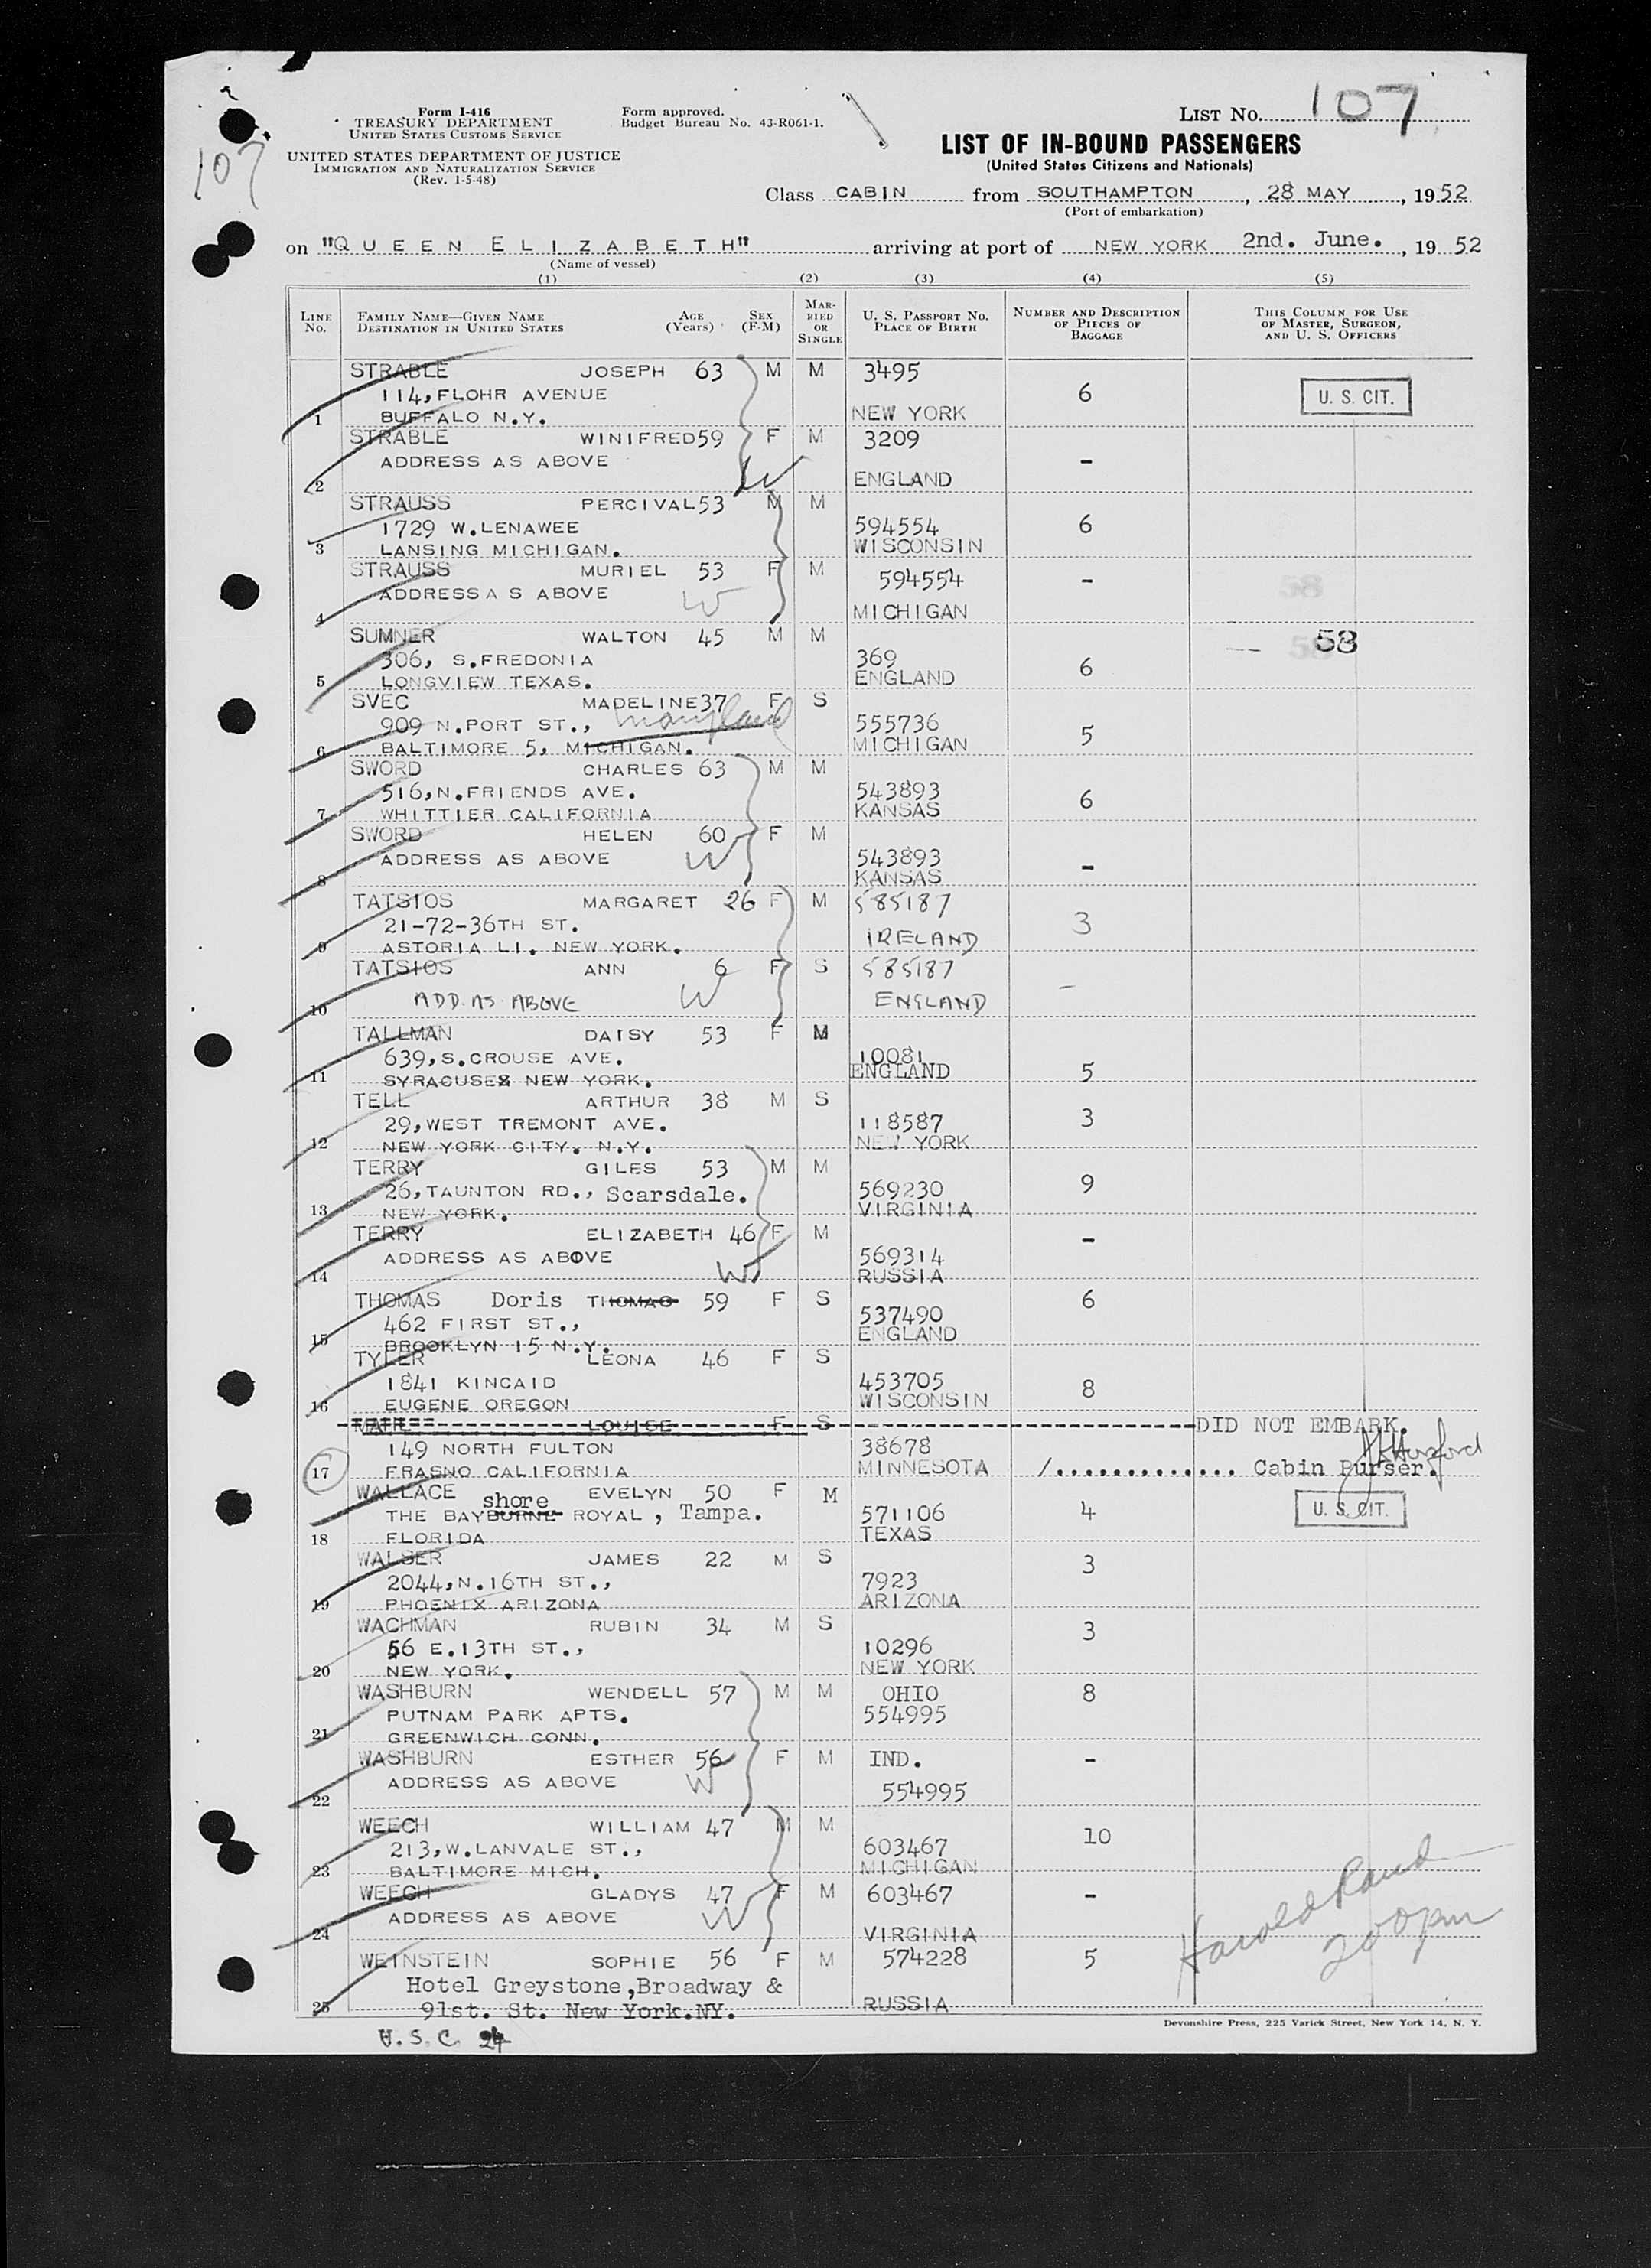 Form I-416
TREASURY DEPARTMENT
UNITED STATES CUSTOMS SERVICE
UNITED STATES DEPARTMENT OF JUSTICE
IMMIGRATION AND NATURALIZATION SERVICE
(Rev. 1-5-48)
Form approved.
Budget Bureau No. 43-R061-1.
LIST No. 107
107
LIST OF IN-BOUND PASSENGERS
(United States Citizens and Nationals)
Class CABIN from SOUTHAMPTON, 28 MAY, 1952
(Port of embarkation)
on "QUEEN ELIZABETH" arriving at port of NEW YORK 2nd. June., 19 52
(Name of vessel)
(1) (2) (3) (4) (5)
LINE No. FAMILY NAME—GIVEN NAME DESTINATION IN UNITED STATES AGE (Years) SEX (F-M) MARRIED OR SINGLE U. S. PASSPORT No. PLACE OF BIRTH NUMBER AND DESCRIPTION OF PIECES OF BAGGAGE THIS COLUMN FOR USE OF MASTER, SURGEON, AND U. S. OFFICERS
STRABLE JOSEPH 63 M M 3495
114, FLOHR AVENUE 6 U. S. CIT.
1 BUFFALO N.Y. NEW YORK
STRABLE WINIFRED 59 F M 3209
ADDRESS AS ABOVE -
2 W ENGLAND
STRAUSS PERCIVAL 53 M M
1729 W.LENAWEE 594554 6
3 LANSING MICHIGAN. WISCONSIN
STRAUSS MURIEL 53 F M 594554 -
ADDRESSA S ABOVE W 58
4 MICHIGAN
SUMNER WALTON 45 M M 58
306, S.FREDONIA 369 6
5 LONGVIEW TEXAS. ENGLAND
SVEC MADELINE 37 F S
909 N.PORT ST., Maryland 555736 5
6 BALTIMORE 5, MICHIGAN. MICHIGAN
SWORD CHARLES 63 M M
516, N.FRIENDS AVE. 543893 6
7 WHITTIER CALIFORNIA KANSAS
SWORD HELEN 60 F M
ADDRESS AS ABOVE W 543893 -
8 KANSAS
TATSIOS MARGARET 26 F M 585187
21-72-36TH ST. 3
9 ASTORIA LI. NEW YORK. IRELAND
TATSIOS ANN 6 F S 585187
ADD. AS ABOVE W ENGLAND -
10
TALLMAN DAISY 53 F M
639, S.CROUSE AVE. 10081
11 SYRACUSE NEW YORK. ENGLAND 5
TELL ARTHUR 38 M S
29, WEST TREMONT AVE. 118587 3
12 NEW YORK CITY. N.Y. NEW YORK
TERRY GILES 53 M M
26, TAUNTON RD., Scarsdale. 569230 9
13 NEW YORK. VIRGINIA
TERRY ELIZABETH 46 F M
ADDRESS AS ABOVE 569314 -
14 W RUSSIA
THOMAS Doris THOMAS 59 F S 6
462 FIRST ST., 537490
15 BROOKLYN 15 N.Y. ENGLAND
TYLER LEONA 46 F S
1841 KINCAID 453705 8
16 EUGENE OREGON WISCONSIN
LOUISE F S DID NOT EMBARK.
149 NORTH FULTON 38678
17 FRASNO CALIFORNIA MINNESOTA /.............. Cabin Purser.
WALLACE EVELYN 50 F M
shore
THE BAYBURNE ROYAL, Tampa. 571106 4 U. S. CIT.
18 FLORIDA TEXAS
WALSER JAMES 22 M S
2044, N.16TH ST., 7923 3
19 PHOENIX ARIZONA ARIZONA
WACHMAN RUBIN 34 M S
56 E.13TH ST., 10296 3
20 NEW YORK. NEW YORK
WASHBURN WENDELL 57 M M OHIO 8
PUTNAM PARK APTS. 554995
21 GREENWICH CONN.
WASHBURN ESTHER 56 F M IND. -
ADDRESS AS ABOVE W 554995
22
WEECH WILLIAM 47 M M
213, W.LANVALE ST., 603467 10
23 BALTIMORE MICH. MICHIGAN
WEECH GLADYS 47 F M 603467 -
ADDRESS AS ABOVE W
24 VIRGINIA
Harold Rand
200pm
WEINSTEIN SOPHIE 56 F M 574228 5
Hotel Greystone, Broadway &
25 91st. St. New York.NY. RUSSIA
U.S.C. 24
Devonshire Press, 225 Varick Street, New York 14, N. Y.